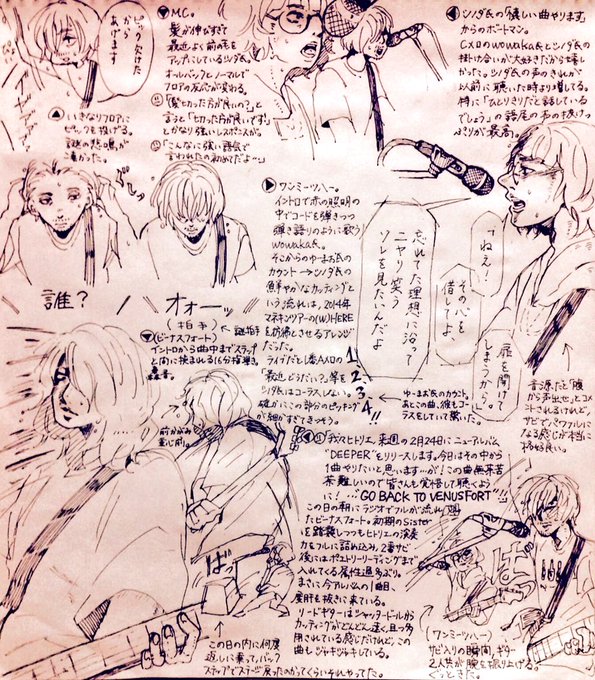 ピック欠けた
あげます
▼MC。
髪が伸びすぎて
最近よく前の毛を
アップにしているシノダ氏。
オールバックとノーマルで
フロアの反応が変わる。
「髪切った方が良いの?」と
言うと「切った方が良いです」
とかなり強いレスポンスが。
「こんなに強い語気で
言われたの初めてだよ…」
▲いきなりフロアに
ピックを投げる。
謎の悲鳴が
凄かった。
誰?
オォーッ
(拍手)
謎拍手
④シノダ氏の「優しい曲やります」
からのボートマン。
CメロのwowakaとシノダE氏の
掛け合いが大好きだから嬉
しかった。シノダ氏の声のきれが
以前に聴いた時より増してる。
特に「ひとりきりだと話している
でしょう」の語尾の声の抜けっ
ぷりが最高。
「ねえ!
その心を
借してよ
扉を開けて
しまうから」
音源だと「腹
から声出せ」とコメ
ントされるけれど、
サビでパワフルに
なる感じが本当に
格好良い。
▶ワンミーツハー。
イントロで赤の照明の
中でコードを弾きつつ
弾き語りのように歌う
wowaka氏。
そこからのゆーまお氏の
カウント→シノダ氏の
鮮やかなカッティングと
いう流れは、2014年
マネキンツアーの(W)HERE
を彷彿とさせるアレンジ
だった。
忘れてた理想に沿って
ニヤリ笑う
ソレを見たいんだよ
ライブだとI番Aメロの
「最近どうだい?」等を
シノダ氏はコーラスしない。
確かにこの部分のピッキング
が細かすぎてきっそう。
1
2、
3
4!!
ゆーまお氏のカウント。
あとこの曲、彼もコー
ラスをしていて驚いた。
▼(ビーナスフォート)
イントロから曲中までスラップ
と間に挟まれる16分指弾き。
轟音。
前かがみ
重心前。
ばっ
この日の内に何度
返しに乗って、バック
ステップでステージ戻ったのかってくらいそれやってた。
「我々ヒトリエ、来週の2月24日にニューアルバム
"DEEPER"をリリースします。今日はその中から
1曲やりたいと思います…が!この曲無茶苦
茶難しいので皆さんも覚悟して聴くよう
に!…"GO BACK TO VENUSFORT"!!」
この日の朝にラジオでフルが流れ
たビーナスフォート。初期のSister
を踏襲しつつもヒトリエの演奏
力をフルに詰め込み、2番サビ
後にはポエトリーリーディングまで
入れてくる属性過多ぶり。
まさに今アルバムの1曲目、
度肝を抜きに来ている。
リードギターはシャッタードールから
カッティングがどんどん速く、且つ多
用されている感じだけれど、この
曲もジャキジャキしている。
(ワンミーツハー)
サビ入りの瞬間、ギター
2人共が腕を振り上げる。
ぐっときた。